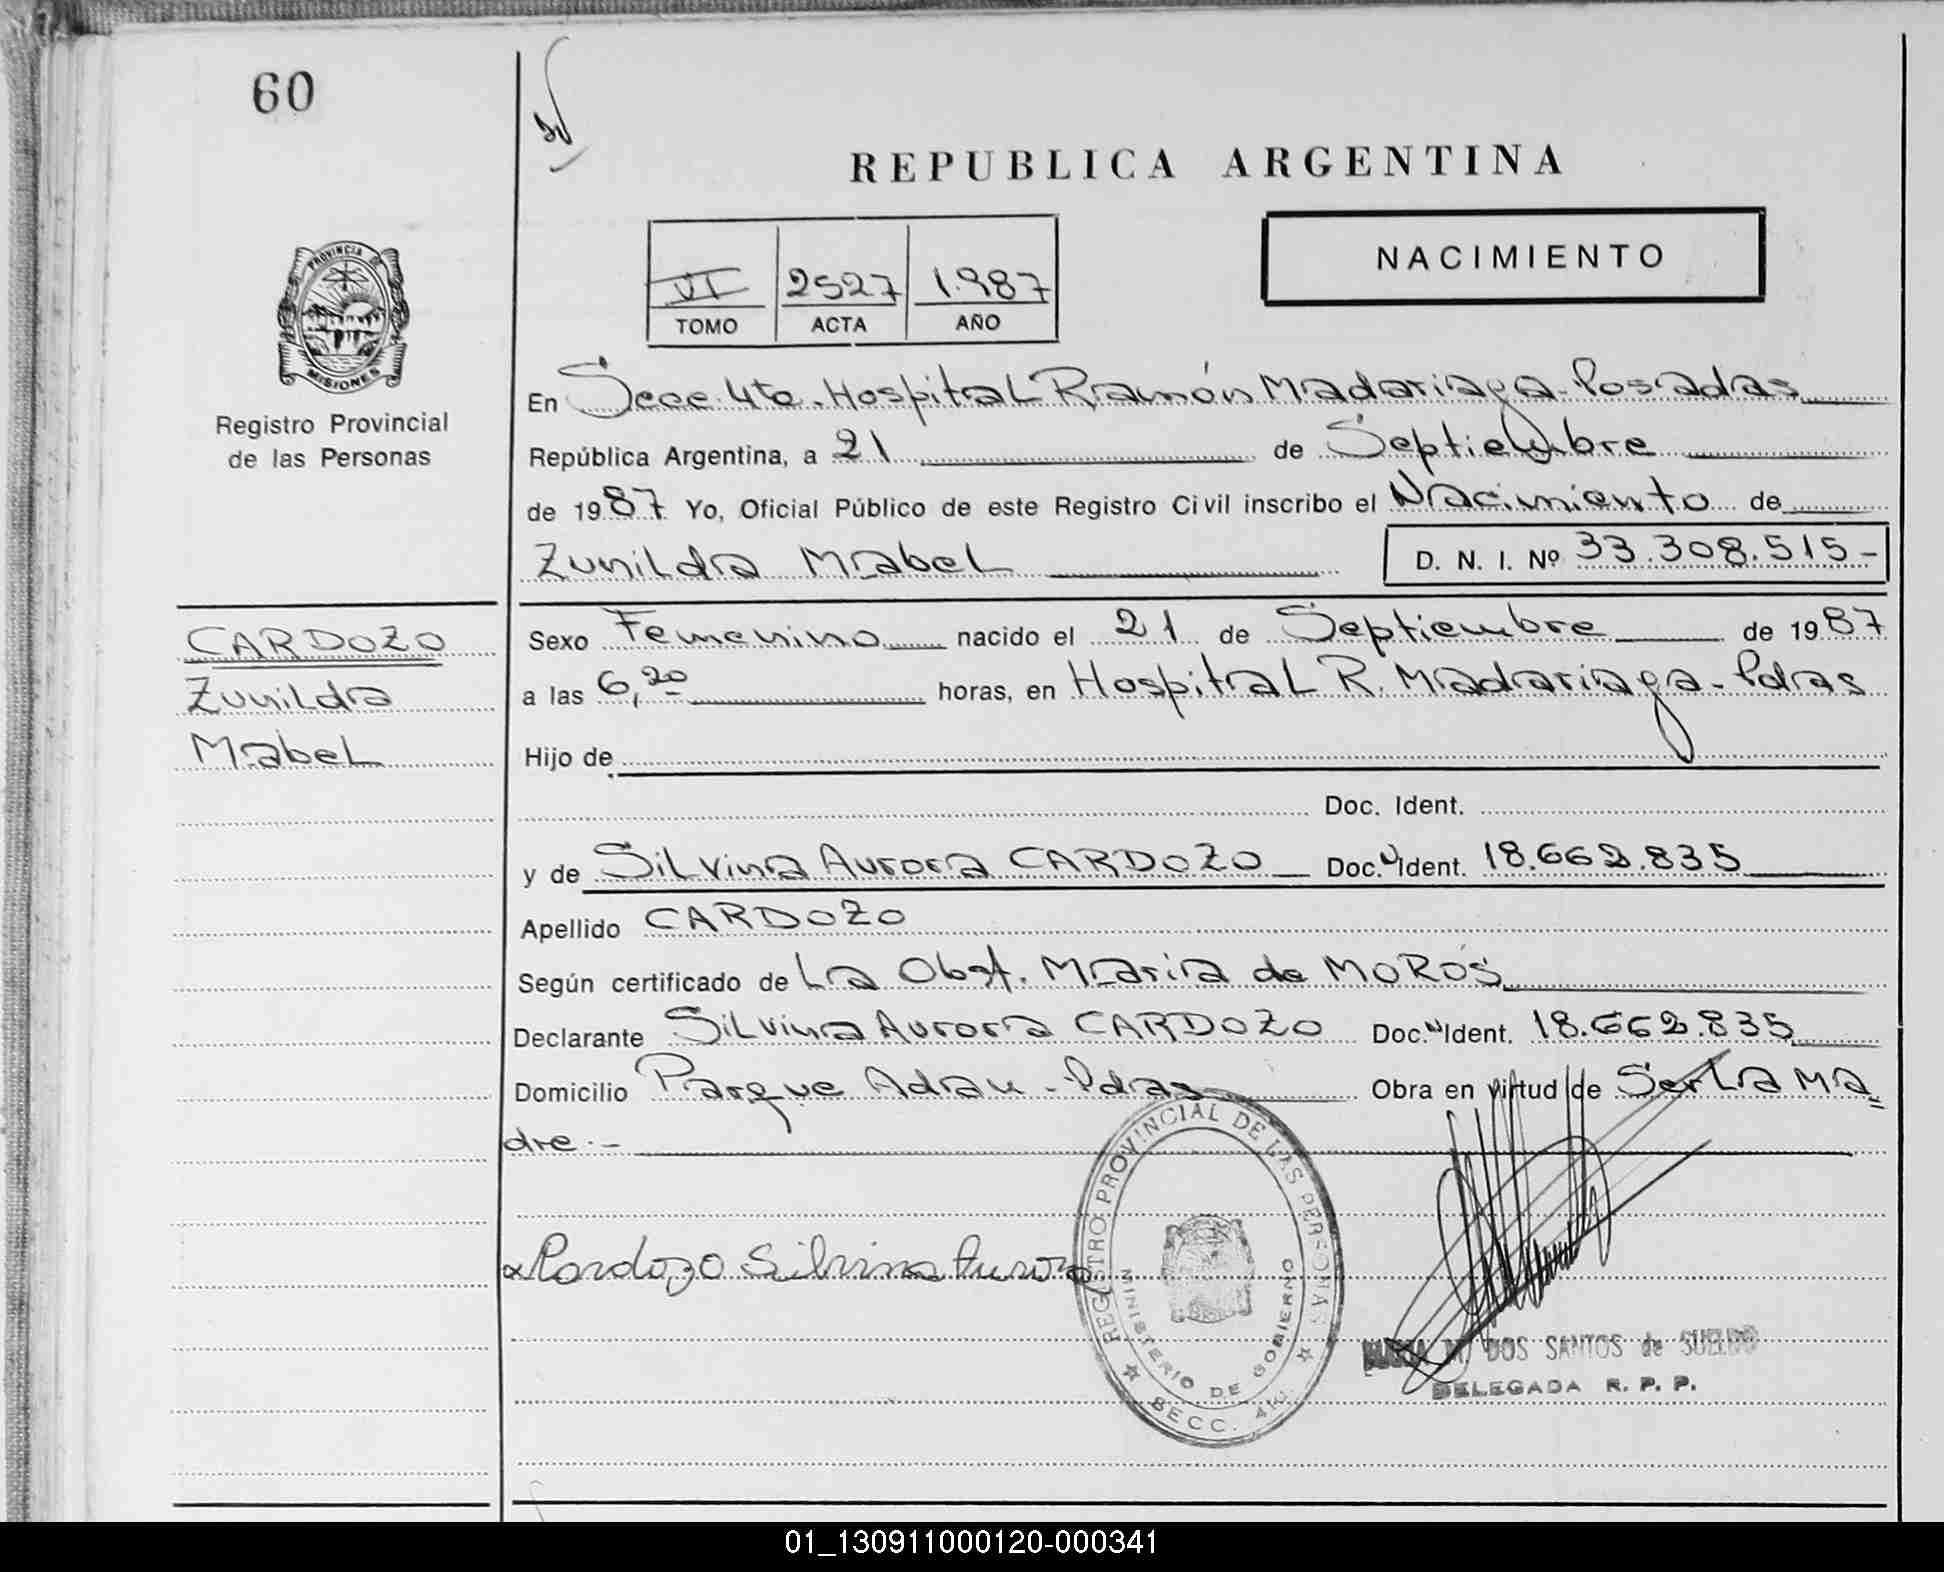 60
REPUBLICA ARGENTINA
NACIMIENTO
VI 2527 1.987
TOMO ACTA AÑO
PROVINCIA DE MISIONES
Registro Provincial
de las Personas
En Secc. 4ta. Hospital Ramón Madariaga - Posadas
República Argentina, a 21 de Septiembre
de 1987 Yo, Oficial Público de este Registro Civil inscribo el Nacimiento de
Zunilda Mabel D. N. I. Nº 33.308.515-
CARDOZO
Zunilda
Mabel
Sexo Femenino nacido el 21 de Septiembre de 1987
a las 6,20 horas, en Hospital R. Madariaga - Pdas
Hijo de
Doc. Ident.
y de Silvina Aurora CARDOZO Doc. Ident. 18.662.835
Apellido CARDOZO
Según certificado de La Obst. Maria de MOROS
Declarante Silvina Aurora CARDOZO Doc. Ident. 18.662.835
Domicilio Parque Adam - Pdas Obra en virtud de Ser La Ma=
dre.-
Cardozo Silvina Aurora
REGISTRO PROVINCIAL DE LAS PERSONAS
MINISTERIO DE GOBIERNO
SECC. 4ta.
M. DOS SANTOS de SUELDO
DELEGADA R. P. P.
01_130911000120-000341